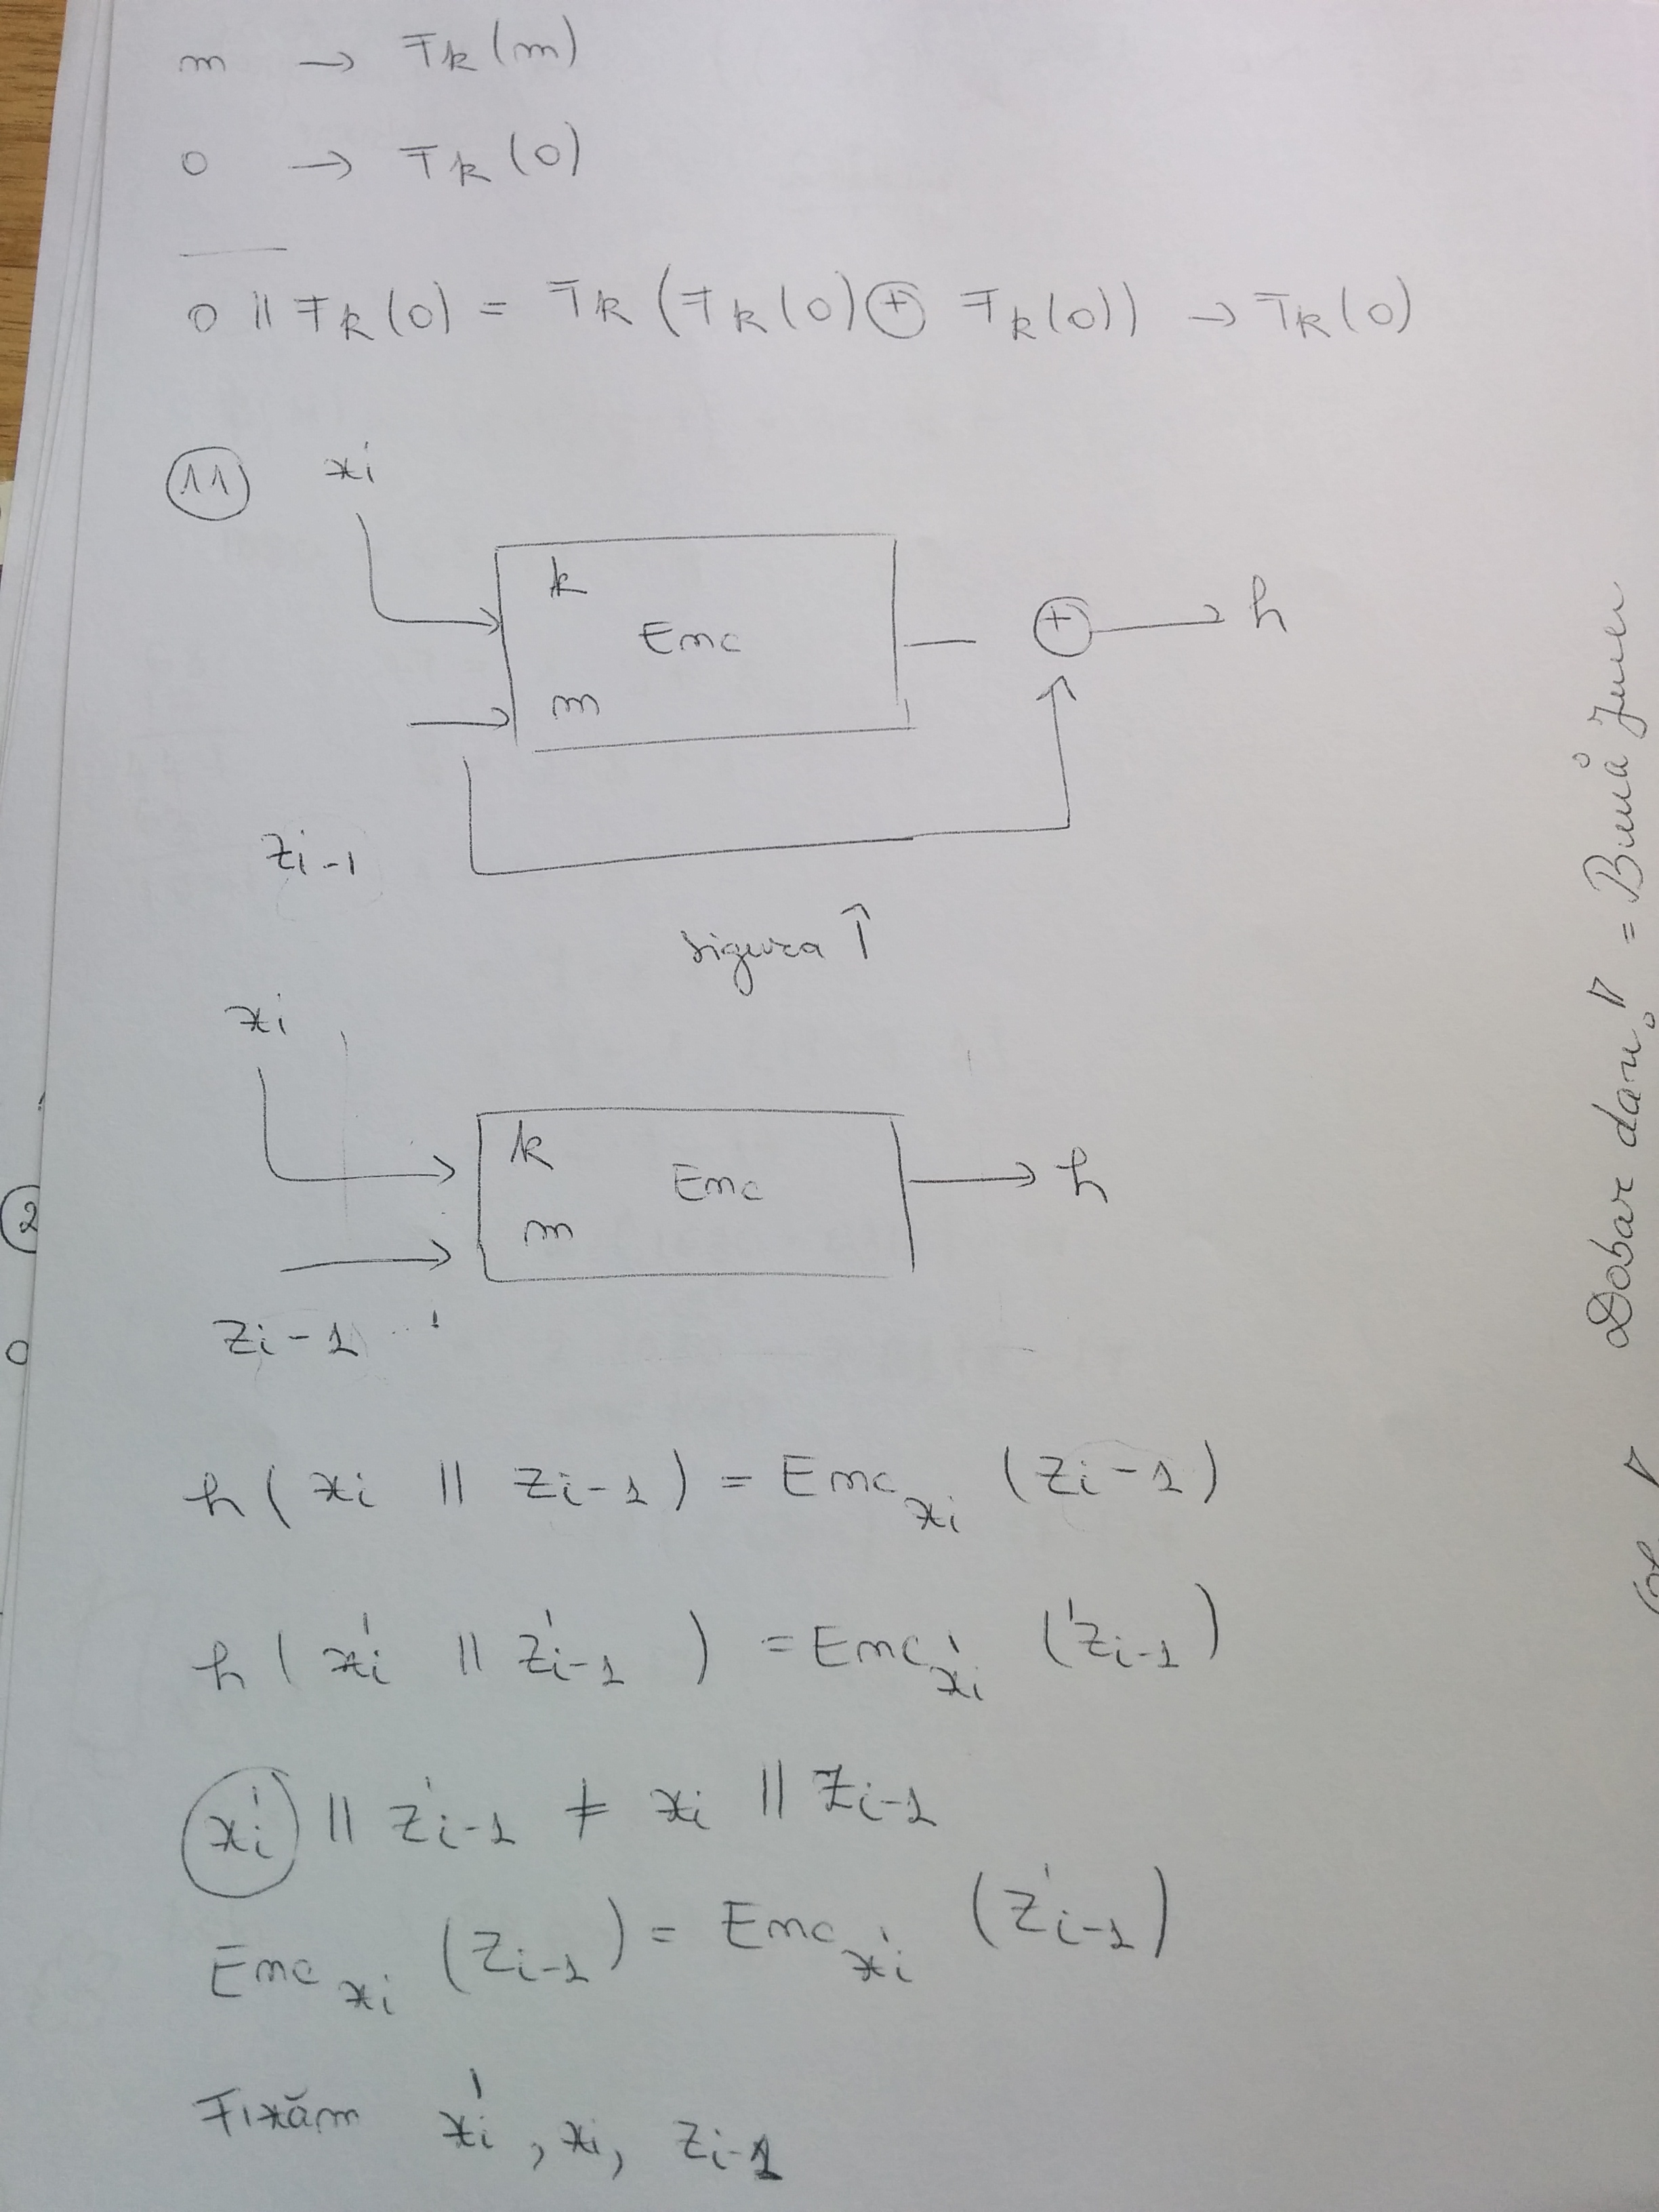 m → Fk(m)
0 → Fk(0)
0 || Fk(0) = Fk(Fk(0) ⊕ Fk(0)) → Fk(0)
11 xi
k
Enc ⊕ → h
m
zi-1
sigura ↑
xi
k
Enc → h
m
zi-1
h(xi || zi-1) = Enc xi (zi-1)
h(xi' || zi-1') = Enc xi' (zi-1')
xi' || zi-1' ≠ xi || zi-1
Enc xi (zi-1) = Enc xi' (zi-1')
Fixăm xi', xi, zi-1
2
0
Dobar dan! = Bună ziua